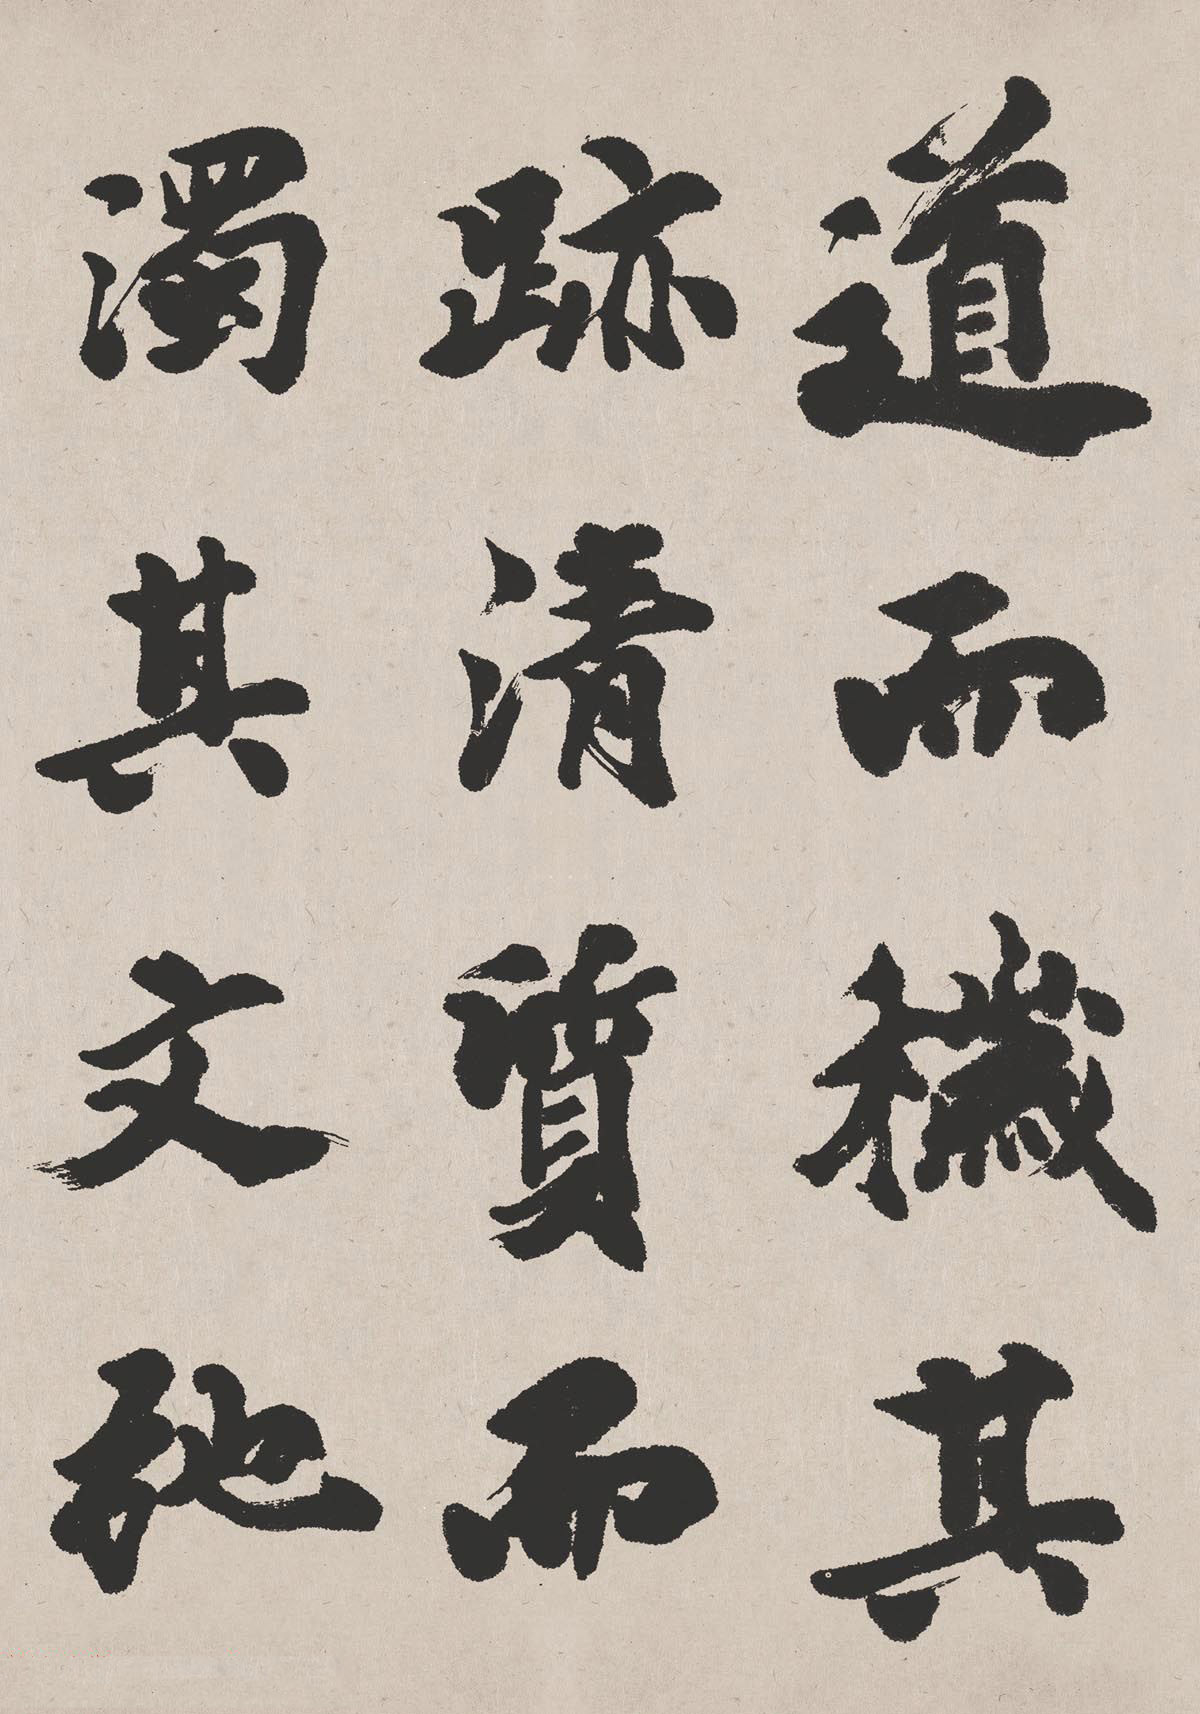 道而穢其
跡清質而
濁其文弛